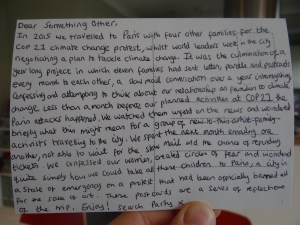 Dear Something Other,
In 2015 we travelled to Paris with four other families for the
COP 21 climate change protest, whilst world leaders were in the city
negotiating a plan to tackle climate change. It was the culmination of a
year long project in which eleven families had sent letters, parcels and postcards
every month to each other, a slow mail conversation over a year interrupting
confessing and attempting to think about our relationship as families to climate
change. Less than a month before our planned activities at COP 21 the
Paris attacks happened. We watched them unfold on the news and wondered
briefly what this might mean for a group of -artist-family-
activists travelling to the city. We spent the next month emailing one
another, not able to wait for the slow mail and the chance of
tickets. We expressed our worries, created circles of fear and wondered
quite simply how we could take all those children to Paris, a city in
a state of emergency on a protest that had been officially banned all
for the sake of art. These postcards are a series of reflections
of the . Enjoy! Search Party x